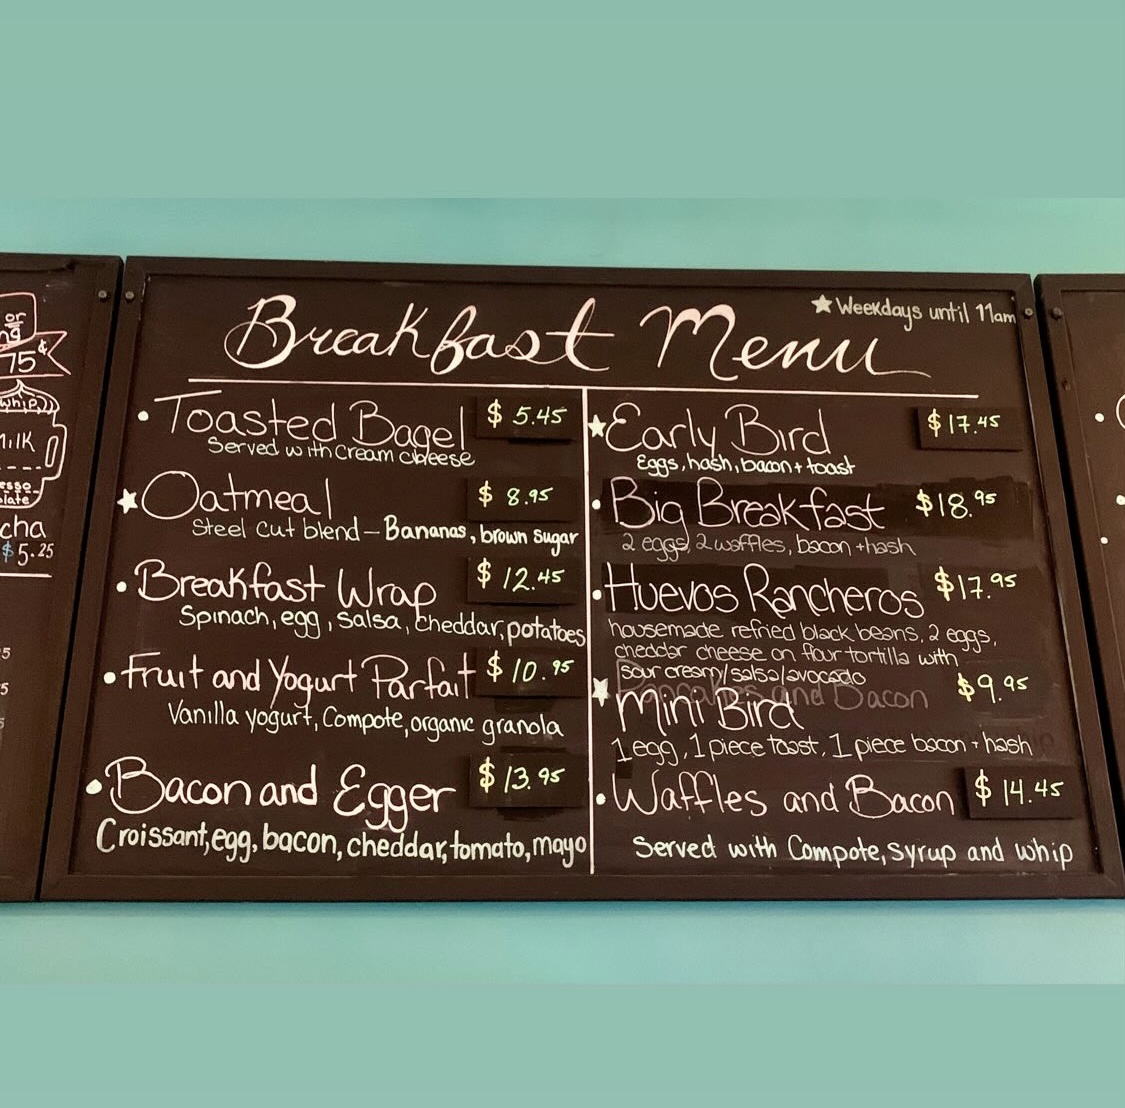 Breakfast Menu
★ Weekdays until 11am
• Toasted Bagel $ 5.45
Served with Cream cheese
★ Oatmeal $ 8.95
Steel Cut blend – Bananas, brown sugar
• Breakfast Wrap $ 12.45
Spinach, egg, salsa, cheddar, potatoes
• Fruit and Yogurt Parfait $ 10.95
Vanilla yogurt, Compote, organic granola
• Bacon and Egger $ 13.95
Croissant, egg, bacon, cheddar, tomato, mayo
★ Early Bird $17.45
Eggs, hash, bacon + toast
• Big Breakfast $18.95
2 eggs, 2 waffles, bacon + hash
• Huevos Rancheros $17.95
housemade refried black beans, 2 eggs,
cheddar cheese on flour tortilla with
sour cream/salsa/avocado
★ Mini Bird $9.95
1 egg, 1 piece toast, 1 piece bacon + hash
• Waffles and Bacon $ 14.45
Served with Compote, syrup and whip
or
75¢
whip
Milk
cha
$5.25